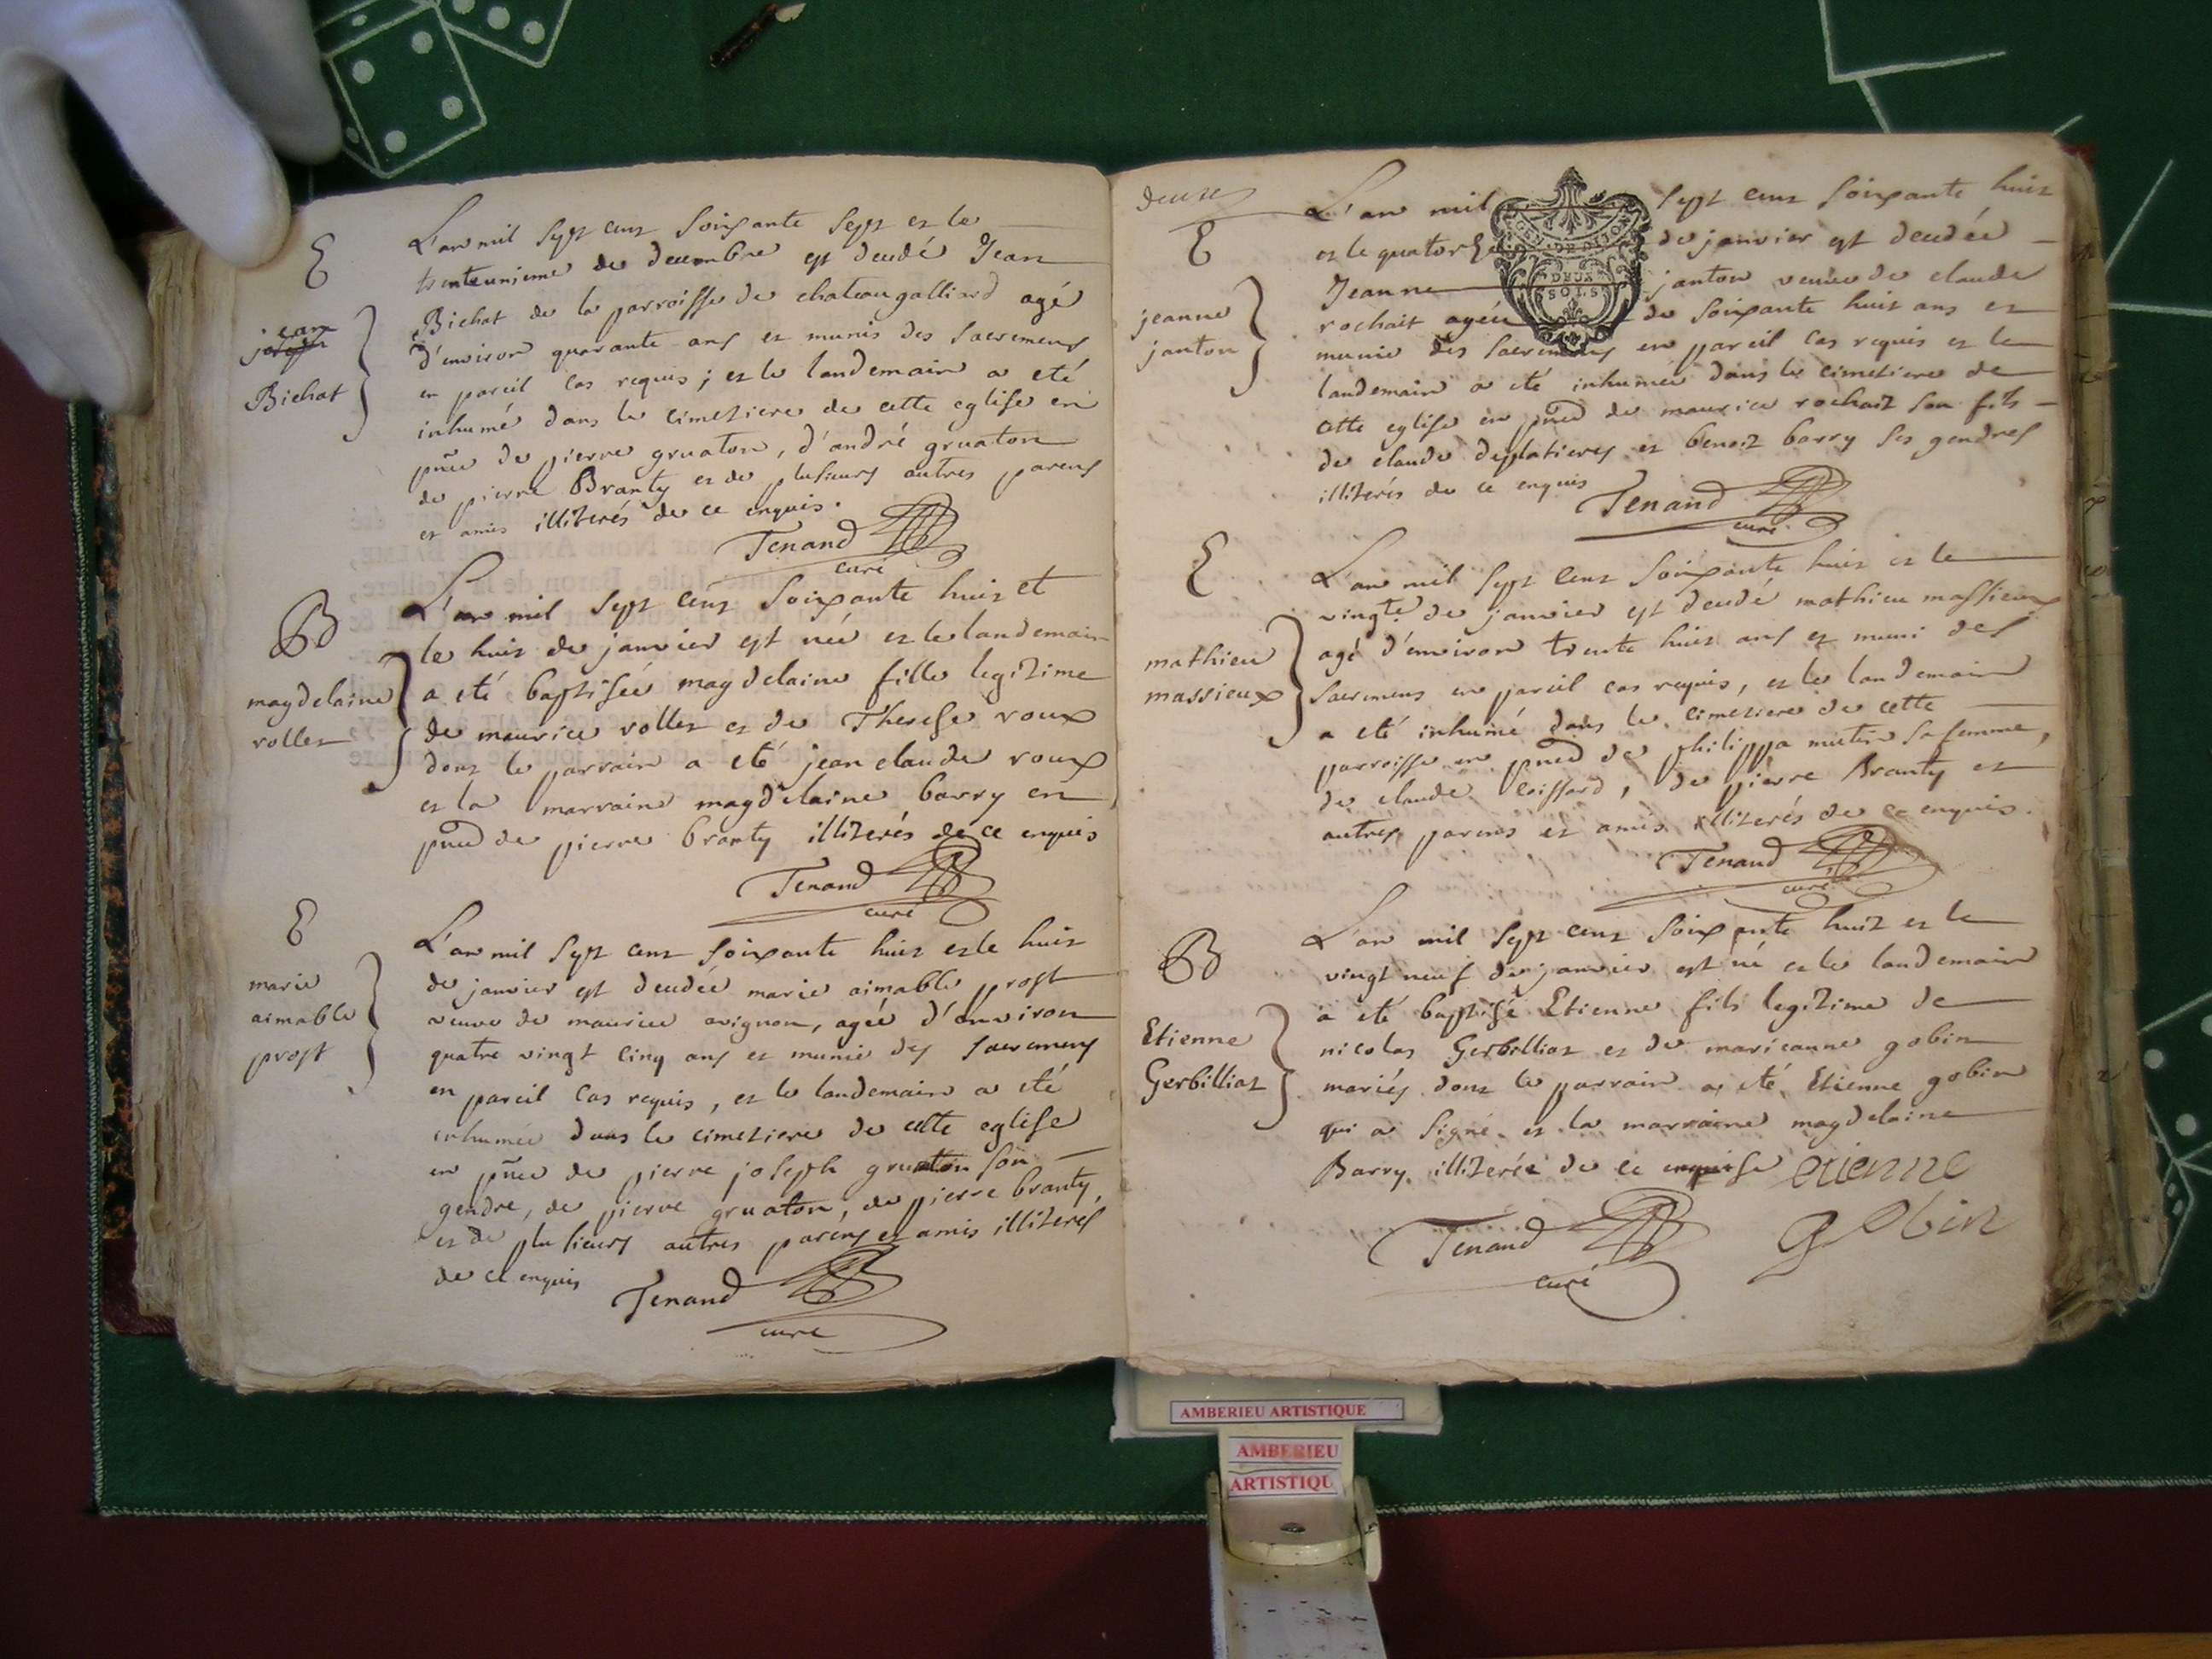 E
jean
joseph
Bichat
L'an mil sept cent soixante sept et le
trenteunieme de decembre est decedé Jean
Bichat de la parroisse de chateaugalliard agé
d'environ quarante ans et munis des sacremens
en pareil cas requis ; et le landemain a eté
inhumé dans le cimetiere de cette eglise en
pñce de pierre gruaton, d'andré gruaton
de pierre Branty et de plusieurs autres parens
et amis illiterés de ce enquis.
Tenand
curé
B
magdelaine
rollet
L'an mil sept cent soixante huit et
le huit de janvier est née et le landemain
a eté baptisée magdelaine fille legitime
de maurice rollet et de Therese roux
dont le parrain a eté jean claude roux
et la marraine magdelaine barry en
pñce de pierre branty illiterés de ce enquis
Tenand
curé
E
marie
aimable
prost
L'an mil sept cent soixante huit et le huit
de janvier est decedée marie aimable prost
veuve de maurice avignon, agée d'environ
quatre vingt cinq ans et munie des sacremens
en pareil cas requis, et le landemain a eté
inhumée dans le cimetiere de cette eglise
en pñce de pierre joseph gruaton son
gendre, de pierre gruaton, de pierre branty,
et de plusieurs autres parens et amis illiterés
de ce enquis
Tenand
curé
deuze
E
jeanne
janton
L'an mil sept cent soixante huit
et le quatorze de janvier est decedée
Jeanne janton veuve de claude
rochait agée de soixante huit ans et
munie des sacremens en pareil cas requis et le
landemain a eté inhumée dans le cimetiere de
cette eglise en pñce de maurice rochait son fils
de claude desplatieres et benoit barry ses gendres
illiterés de ce enquis
GEN. DE DIJON
DEUX
SOLS
Tenand
curé
E
mathieu
massieux
L'an mil sept cent soixante huit et le
vingte. de janvier est decedé mathieu massieux
agé d'environ trente huit ans et muni des
sacremens en pareil cas requis, et le landemain
a eté inhumé dans le cimetiere de cette
parroisse en pñce de philippa mutin sa femme,
de claude loiffard, de pierre Branty et
autres parens et amis illiterés de ce enquis.
Tenand
curé
B
Etienne
Gerbilliat
L'an mil sept cent soixante huit et le
vingt neuf de janvier est né et le landemain
a eté baptisé Etienne fils legitime de
nicolas Gerbilliat et de marieanne gobin
mariés dont le parrain a eté Etienne gobin
qui a signé et la marraine magdelaine
Barry illiterée de ce enquise etienne
gobin
Tenand
curé
AMBERIEU ARTISTIQUE
AMBERIEU
ARTISTIQU